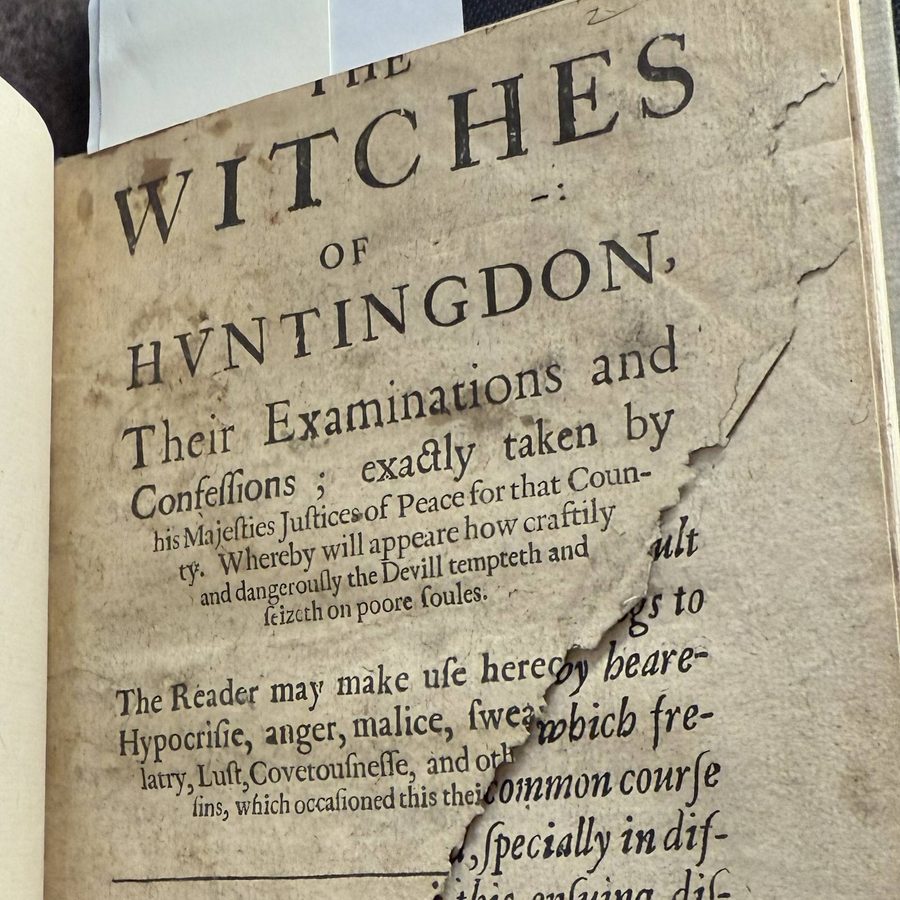 THE
WITCHES
OF
HVNTINGDON,
Their Examinations and
Confeſſions ; exactly taken by
his Majeſties Juſtices of Peace for that Coun-
ty. Whereby will appeare how craftily
and dangerouſly the Devill tempteth and
ſeizeth on poore ſoules.
The Reader may make uſe hereof
Hypocriſie, anger, malice, ſwea
latry, Luſt, Covetouſneſſe, and oth
ſins, which occaſioned this thei
ult
gs to
by heare-
which fre-
common courſe
, ſpecially in diſ-
this enſuing diſ-